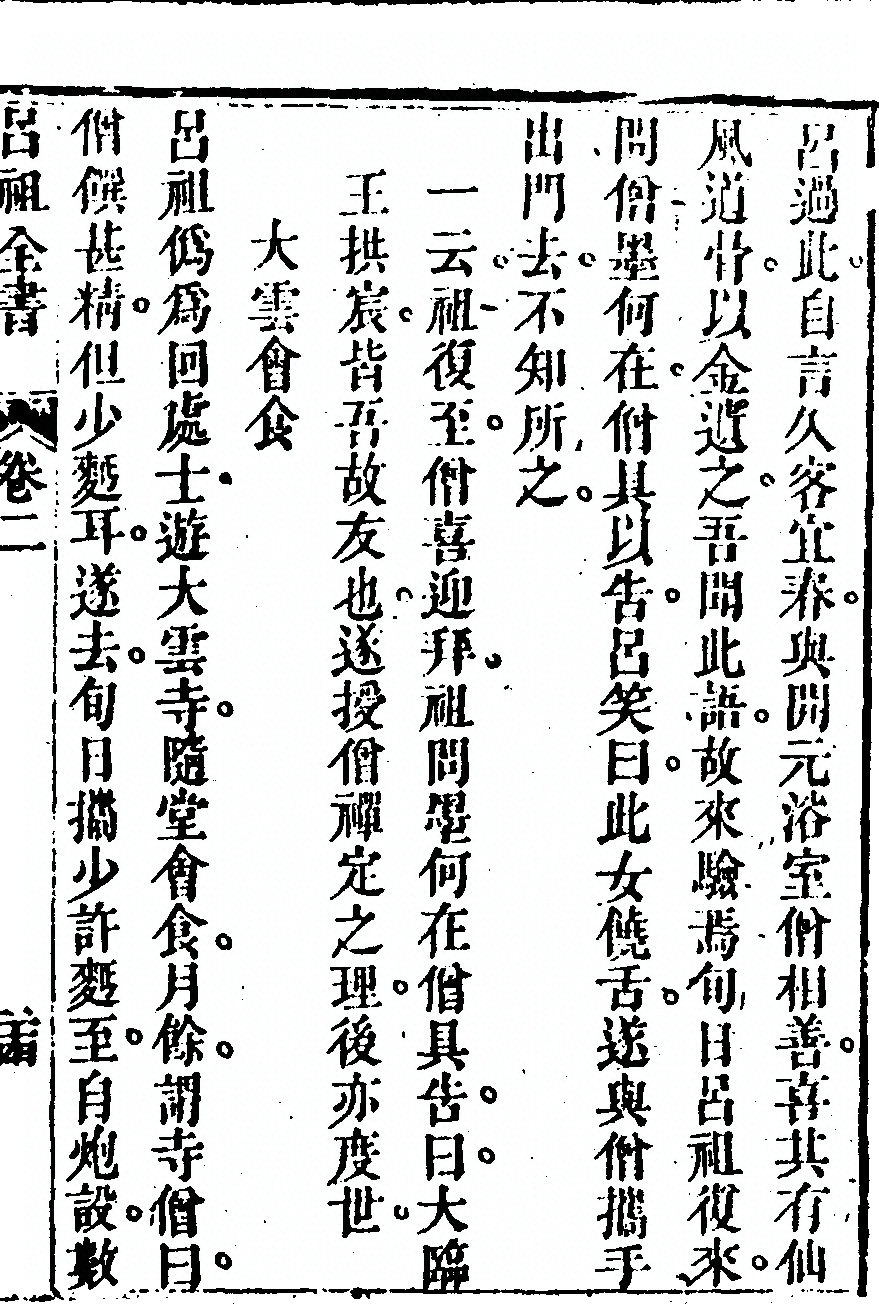 呂過此自言久客宜春與開元浴室僧相善喜其有仙
風道骨以金遺之吾聞此語故來驗焉旬日呂祖復來
問僧墨何在僧具以告呂笑曰此女饒舌遂與僧攜手
出門去不知所之
一云祖復至僧喜迎拜祖問墨何在僧具告曰大臨
王拱宸皆吾故友也遂授僧禪定之理後亦度世
大雲會食
呂祖僞爲回處士遊大雲寺隨堂會食月餘謂寺僧曰
僧饌甚精但少麫耳遂去旬日攜少許麫至自炮設數
呂祖全書 卷二